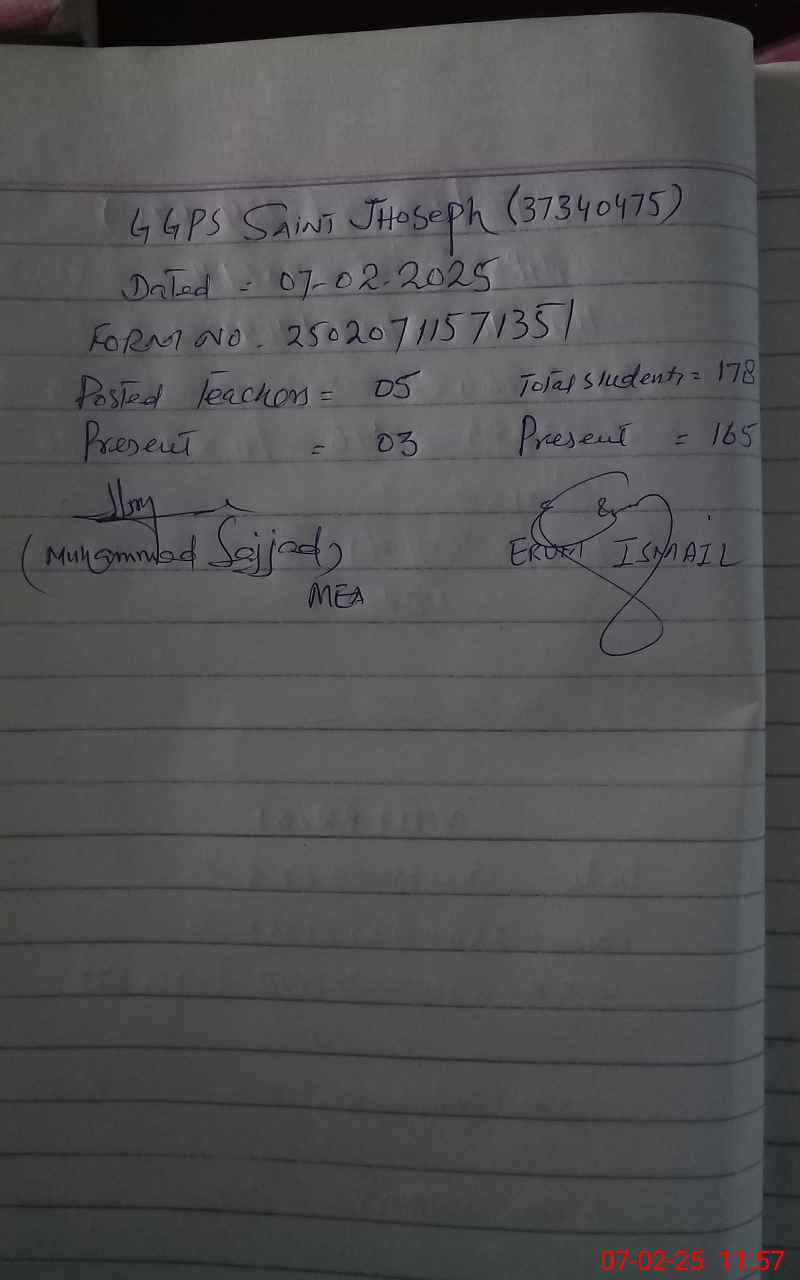 GGPS SAINT JHOSEPH (37340475)
Dated = 07-02-2025
FORM NO. 25020711571351
Posted Teachers = 05 Total students = 178
Present = 03 Present = 165
(Muhammad Sajjad)
ISMAIL
MEA
07-02-25 11:57